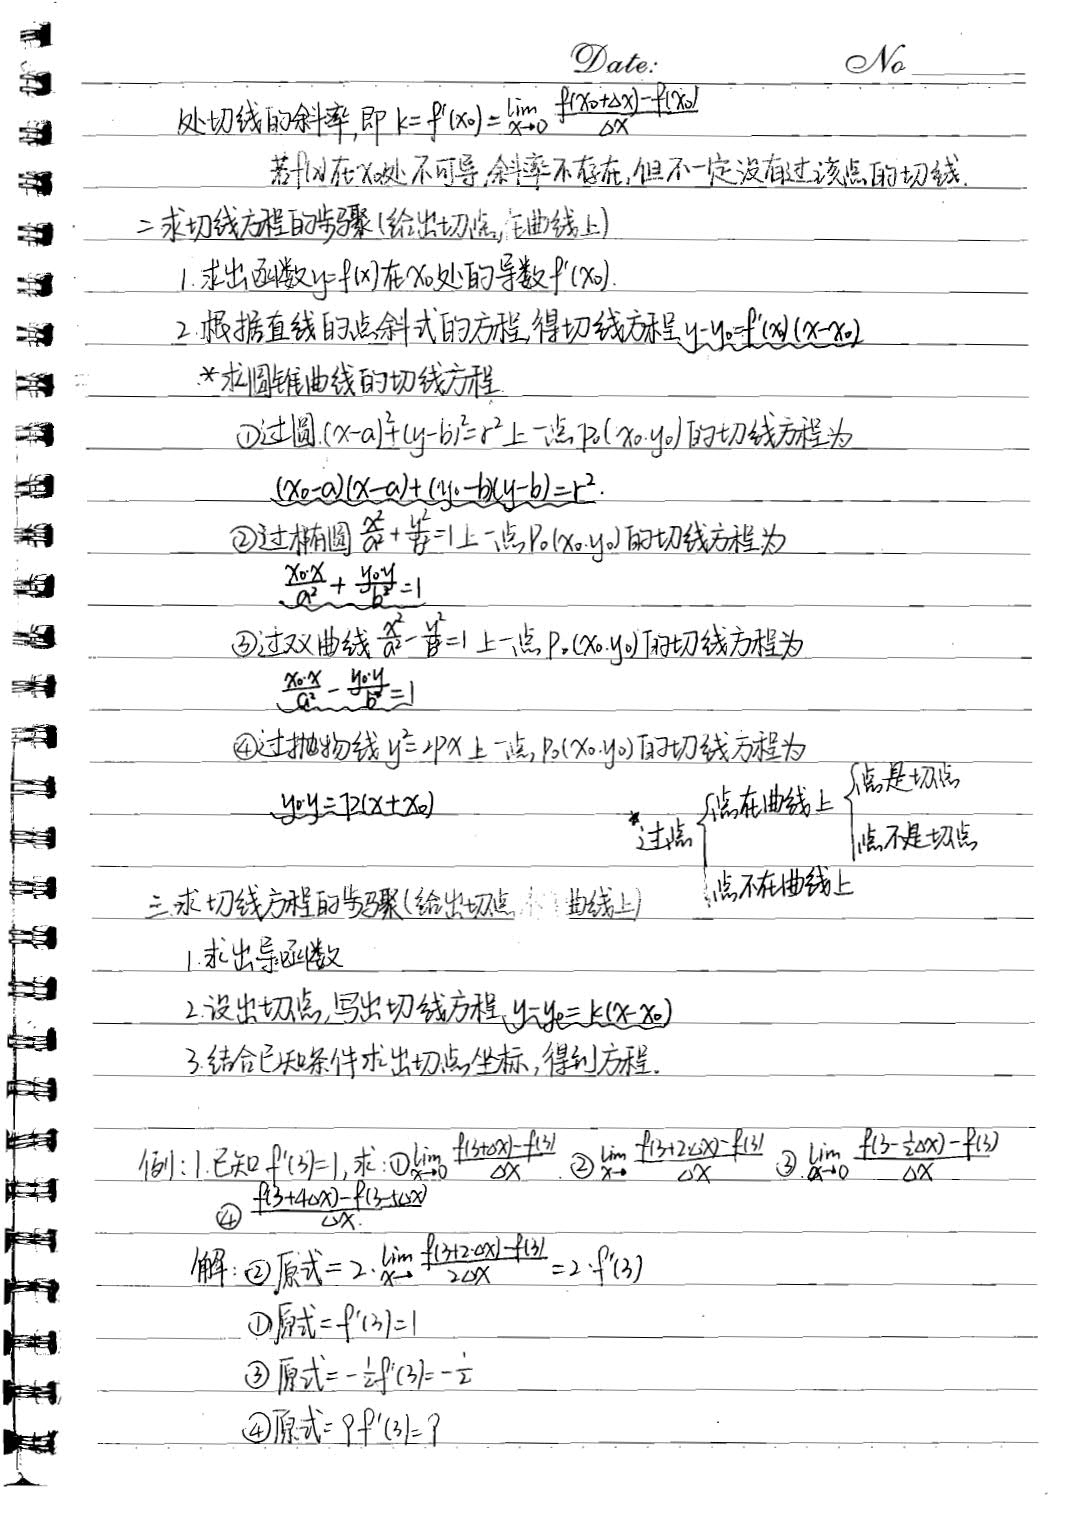 Date: No
处切线的斜率,即 k=f'(x₀)=lim x→0 (f(x₀+Δx)-f(x₀))/Δx
若f(x)在x₀处不可导,斜率不存在,但不一定没有过该点的切线.
二.求切线方程的步骤(给出切点,在曲线上)
1.求出函数y=f(x)在x₀处的导数f'(x₀).
2.根据直线的点斜式的方程,得切线方程y-y₀=f'(x₀)(x-x₀)
*求圆锥曲线的切线方程
①过圆(x-a)²+(y-b)²=r²上一点P₀(x₀.y₀)的切线方程为
(x₀-a)(x-a)+(y₀-b)(y-b)=r².
②过椭圆 x²/a²+y²/b²=1上一点P₀(x₀.y₀)的切线方程为
x₀·x/a² + y₀·y/b² =1
③过双曲线 x²/a²-y²/b²=1上一点P₀(x₀.y₀)的切线方程为
x₀·x/a² - y₀·y/b² =1
④过抛物线y²=2px上一点P₀(x₀.y₀)的切线方程为
y₀·y=p(x+x₀)
*过点{点在曲线上{点是切点
点不是切点
点不在曲线上
三.求切线方程的步骤(给出切点 曲线上)
1.求出导函数
2.设出切点,写出切线方程y-y₀=k(x-x₀)
3.结合已知条件求出切点坐标,得到方程.
例:1.已知f'(3)=1,求:①lim x→0 (f(3+Δx)-f(3))/Δx ②lim x→ (f(3+2Δx)-f(3))/Δx ③lim x→0 (f(3-½Δx)-f(3))/Δx
④(f(3+4Δx)-f(3-5Δx))/Δx.
解:②原式=2·lim x→ (f(3+2·Δx)-f(3))/2Δx =2·f'(3)
①原式=f'(3)=1
③原式=-½f'(3)=-½
④原式=9f'(3)=9